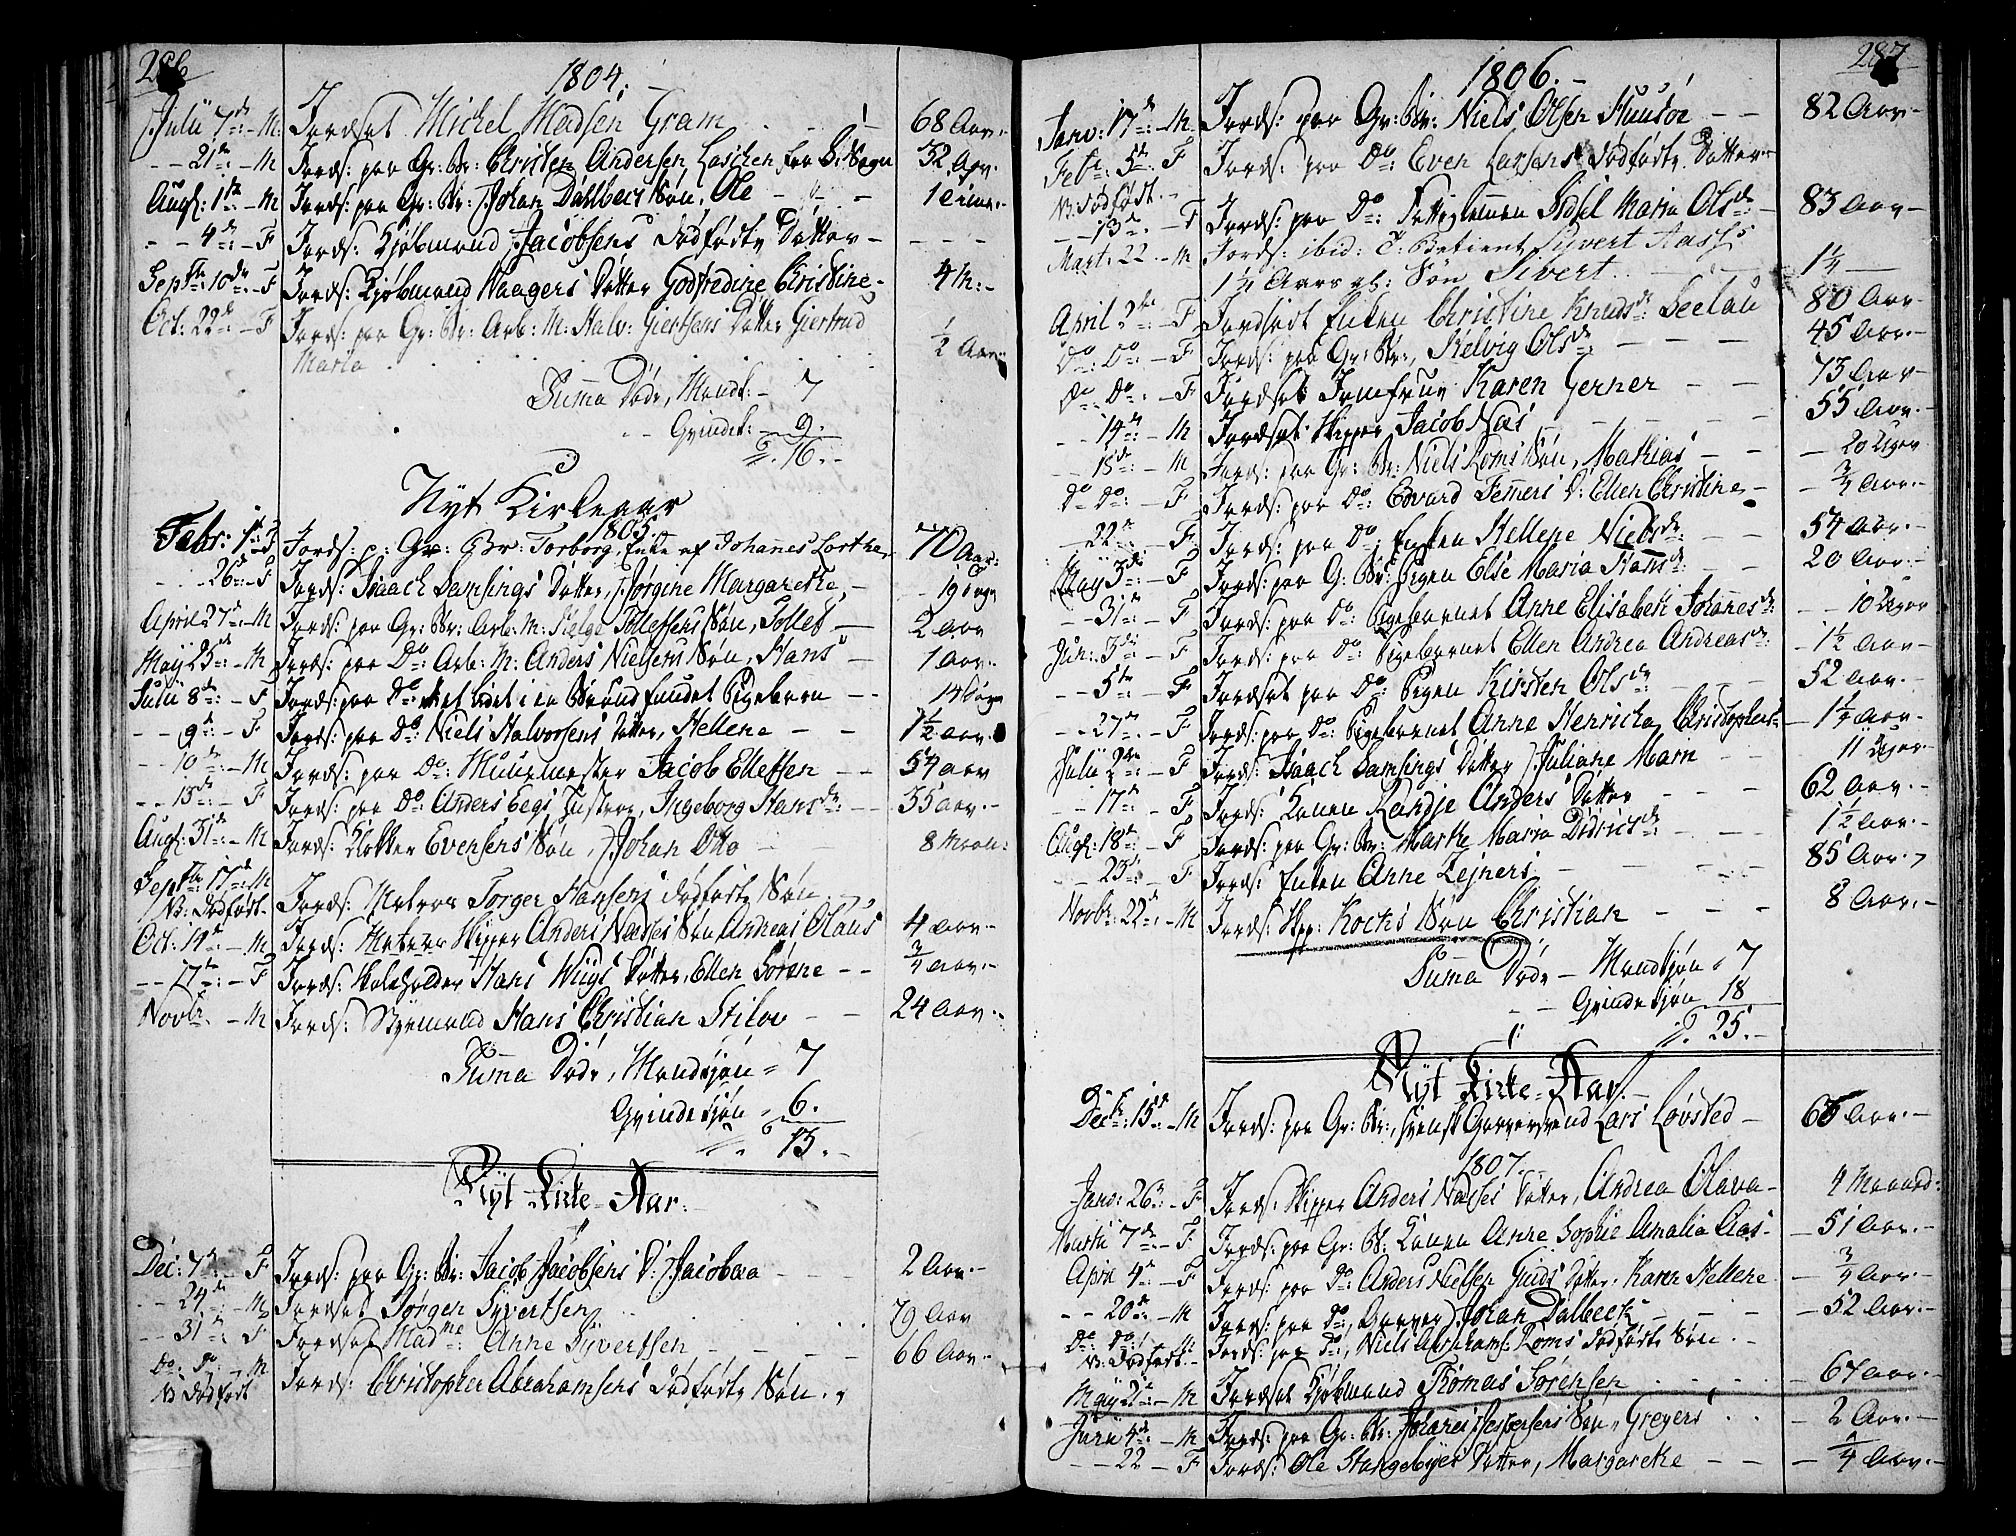 286
1804.
Julii 7de – M. Jordsat Michel Madsen Gram 68 Aar.
– 21de – M Jords: paa Gr: Br: Christen Andersen 32 Aar.
Aug: 1ste – M Jords: paa Gr: Br: Johan Dahlbecs Søn, Ole 1 time.
– 4de – F Jords: Kjøbmand Jacobsens dødfødte Datter –
Septb: 10de – F Jords: Kjøbmand Haagers Datter Godfredine Christine 4 M: –
Oct: 22de – F Jords: paa Gr: Br: Arb: M: Halv: Giertsens Datter Giertrud
Maria ½ Aar.
Suma Døde, Mandk: – 7
Qvindek: – 9.
S. 16. –
Nyt Kirkeaar
1805.
Febr: 1ste F Jords: p: Gr: Br: Torborg, Enke af Johannes 70 Aar:
– 26de – F Jords: Isaach Samsings Datter, Jørgine Margarethe –
April 27de – M Jords: paa Gr: Br: Arb: M: Tollefsens Søn, Tollef – 2 Aar
Maij 25de – M Jords: paa Do: Arb: M: Anders Nielsens Søn, Hans – 1 Aar. –
Julii 8de – F Jords: paa Do: et lidet i en Brønd fundet Pigebarn –
– 9de – F Jords: paa Do: Niels Halvorsens Datter, Hellene – 1½ Aar.
– 10de – M Jords: paa Do: Muurmester Jacob Ellefsen – 54 Aar
– 15de – F Jords: paa Do: Anders Hustroe, Ingeborg Hansdr: – 35 Aar. –
Aug: 31te – M Jords: Klokker Evensens Søn, Johan Otto 8 Maan:
Septbr: 17de M
NB: Dødfødt. Jords: Matros Torger Hansens dødfødte Søn
Oct: 14de – M Jords: Skipper Anders Næsses Søn, Andreas Olaus 4 Aar. –
– 17de – F Jords: Skoleholder Hans Wiigs Datter, Ellen Sørene – ¾ Aar. –
Novbr. – M Jords: Styrmand Hans Christian Stilov – 24 Aar. –
Suma Døde, Mandkjøn = 7
Qvindekjøn = 6.
13. –
Nyt Kirke-Aar.
Dec: 7de F Jords: paa Gr: Br: Jacob Jacobsens D: Jacobæa 2 Aar. –
– 24de – M Jordsat Jørgen Syvertsen 79 Aar
– 31te F Jordsat Madme Anne Syvertsen 66 Aar. –
Do: Do: – M
NB: Dødfødt Jords: Christopher Abrahamsens dødfødte Søn.
287
1806. –
Janv: 17de – M Jords: paa Gr: Br: Niels Olsen 82 Aar. –
Feb: 5te F
NB: Dødfødt. – Jords: paa Do: Even Larsens dødfødte Datter
– 13de – F Jords: paa Do: Fattiglemmen Sidsel Maria Olsdr: – 83 Aar –
Mart: 22 – M Jords: ibid: T: Betient Syvert Aas's
1¼ Aars gl: Søn Sivert 1¼ –
April 2de – F Jordsadt Enken Christine Knudsdr: Seelau 80 Aar –
Do: Do: – F Jords: paa Gr: Br:, Helvig Olsdr: 45 Aar. –
Do Do: – F Jordsat Jomfrue Karen Gerner – 73 Aar –
– 14de – M Jordsat Skipper Jacob Næs 55 Aar. –
– 15de – M Jords: paa Gr: Br: Niels Roms Søn, Mathias – – 20 Uger
Do Do: F Jords: paa Do: Edvard Femmers D: Ellen Christine – ¾ Aar. –
– 22de – F Jords: paa Do: Enken Hellene Nielsdr: – 54 Aar. –
Maij 3de – F Jords: paa G: Br: Pigen Else Maria Hansdr: – 20 Aar: –
– 31te – F Jords: paa Do: Pigebarnet Anne Elisabeth Johannesdr: – 10 Uger
Jun: 3de – F Jords: paa Do: Pigebarnet Ellen Andrea Andreasdr: – 1½ Aar –
– 5te – F Jordsat paa Do: Pigen Kirsten Olsdr: 52 Aar. –
– 27de – F Jords: paa Do: Pigebarnet Anne Henricha Christophers – 1¼ Aar. –
Julii 2den – F Jords: Isaach Samsings Datter Juliane Marn – 11 Uger. –
– 17de – F Jords: Konen Randje Anders Datter – 62 Aar. –
Aug: 18de – F Jords: paa Gr: Br: Marthe Maria Didricsdr: – 1½ Aar. –
– 23de – F Jords: Enken Anne Zejners – 85 Aar.
Novbr: 22de – M Jords: Skp: Kochs Søn Christian – 8 Aar. –
Suma Døde – Mandkjøn = 7
Qvindekjøn 18
S. 25. –
Nyt Kirke-Aar. –
Decbr: 15de – M Jords: paa Gr: Br:, svensk Garversvend Lars Løvsted – 65 Aar. –
1807. –
Janv: 26de – F Jords: Skipper Anders Næsses Datter, Andrea Olava – 4 Maaned:
Martii 7de – F Jords: paa Gr: Br: Konen Anne Sophie Amalia Aas – – 51 Aar. –
April 4de – F Jords: paa Do: Anders Nielsen Datter, Karen Hellene – ¾ Aar. –
– 20de – M Jords: paa Do:, Garver Johan Dalbeck – – 52 Aar. –
Do: Do: M
NB: Dødfødt. – Jords: paa Do:, Niels Abrahams: Roms dødfødte Søn. –
Maij 21de – M Jordsat Kjøbmand Thomas Sørensen – 67 Aar. –
Junii 4de – M Jords: paa Gr: Br: Johannes Jespersens Søn, Gregers – 2 Aar. –
– 22 – F Jords: Ole Stangebyes Datter, Margarethe – – ¼ Aar. –